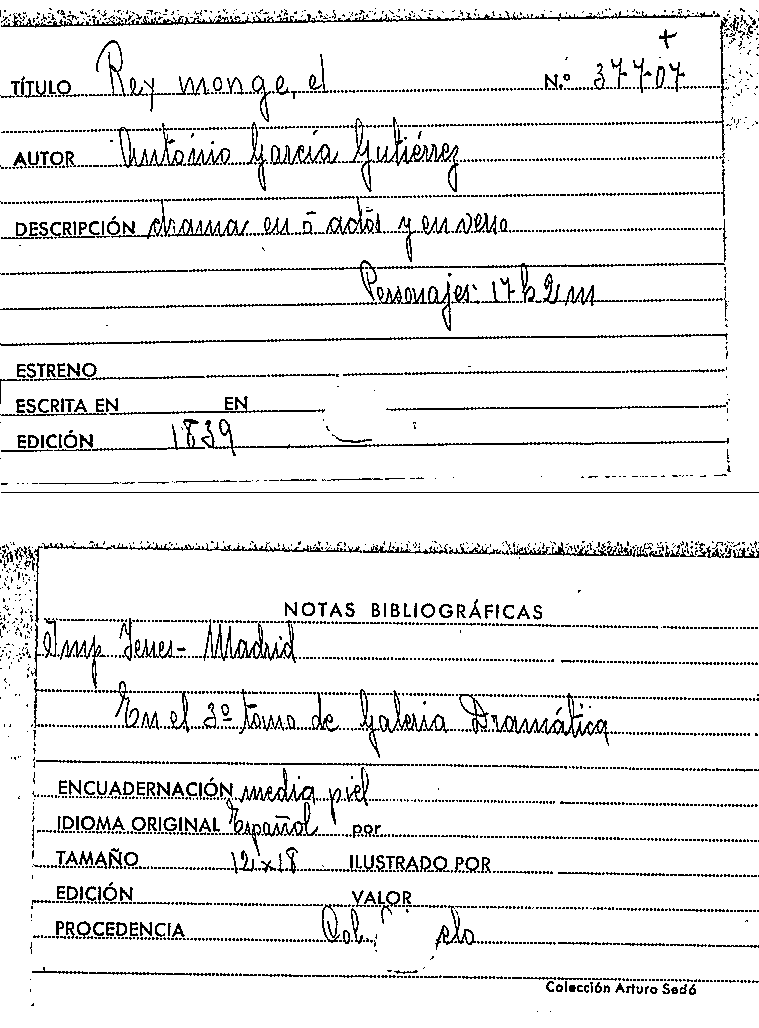 +
TÍTULO Rey monge, el N.º 37707
AUTOR Antonio García Gutiérrez
DESCRIPCIÓN drama en 5 actos y en verso
Personajes: 17 h 2 m
ESTRENO
ESCRITA EN EN
EDICIÓN 1839
NOTAS BIBLIOGRÁFICAS
Imp Yenes - Madrid
En el 3º tomo de Galeria Dramática
ENCUADERNACIÓN media piel
IDIOMA ORIGINAL Español por
TAMAÑO 12 x 18 ILUSTRADO POR
EDICIÓN VALOR
PROCEDENCIA
Colección Arturo Sedó